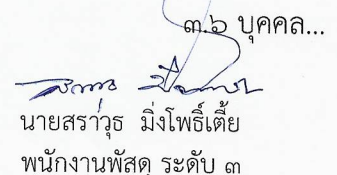 ๓.๖ บุคคล...
นายสราวุธ มิ่งโพธิ์เตี้ย
พนักงานพัสดุ ระดับ ๓